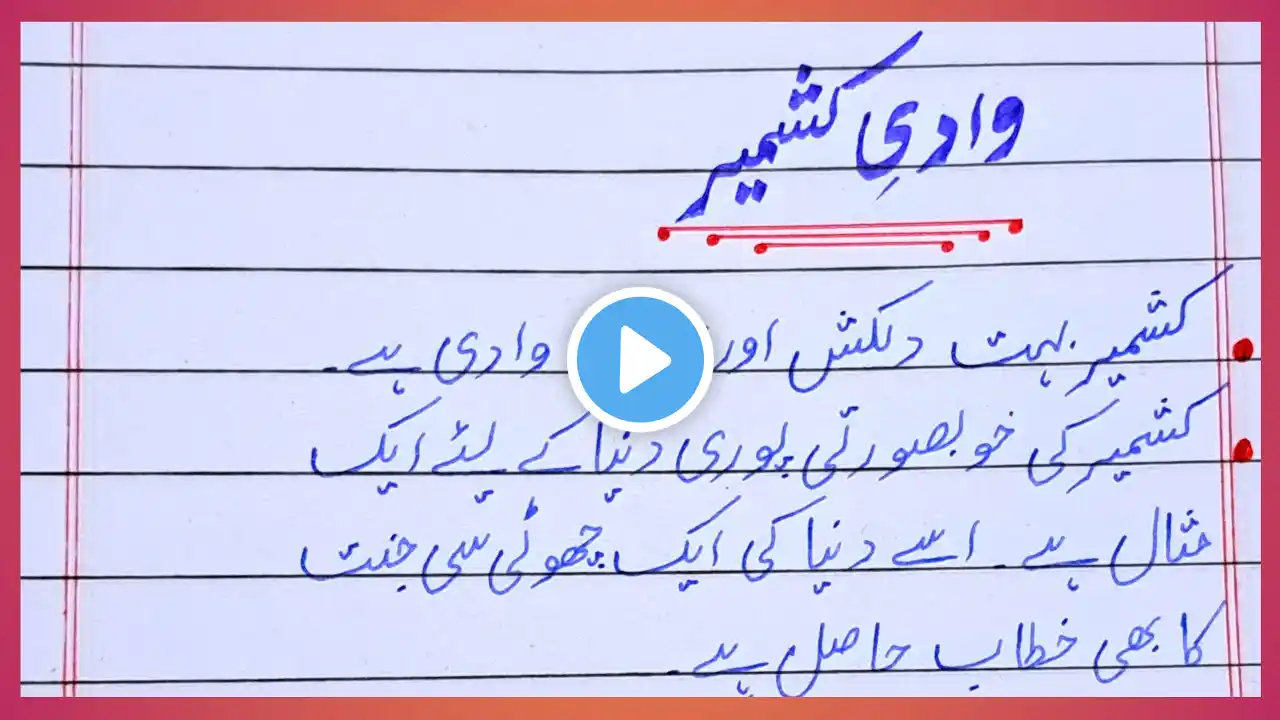 وادیِ کشمیر
کشمیر بہت دلکش اور وادی ہے۔
کشمیر کی خوبصورتی پوری دنیا کے لئے ایک
مثال ہے۔ اسے دنیا کی ایک چھوٹی سی جنت
کا بھی خطاب حاصل ہے۔